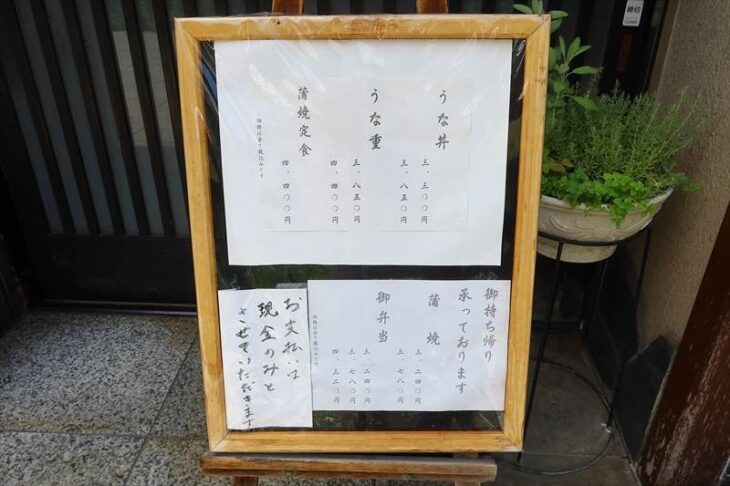 うな丼
三、三〇〇円
三、八五〇円
うな重
三、八五〇円
四、四〇〇円
蒲焼定食
四、四〇〇円
価格は全て税込みです
御持ち帰り
承っております
蒲焼
三、二四〇円
三、七八〇円
御弁当
三、二四〇円
三、七八〇円
四、三二〇円
価格は全て税込みです
お支払いは
現金のみと
させていただきます
締切